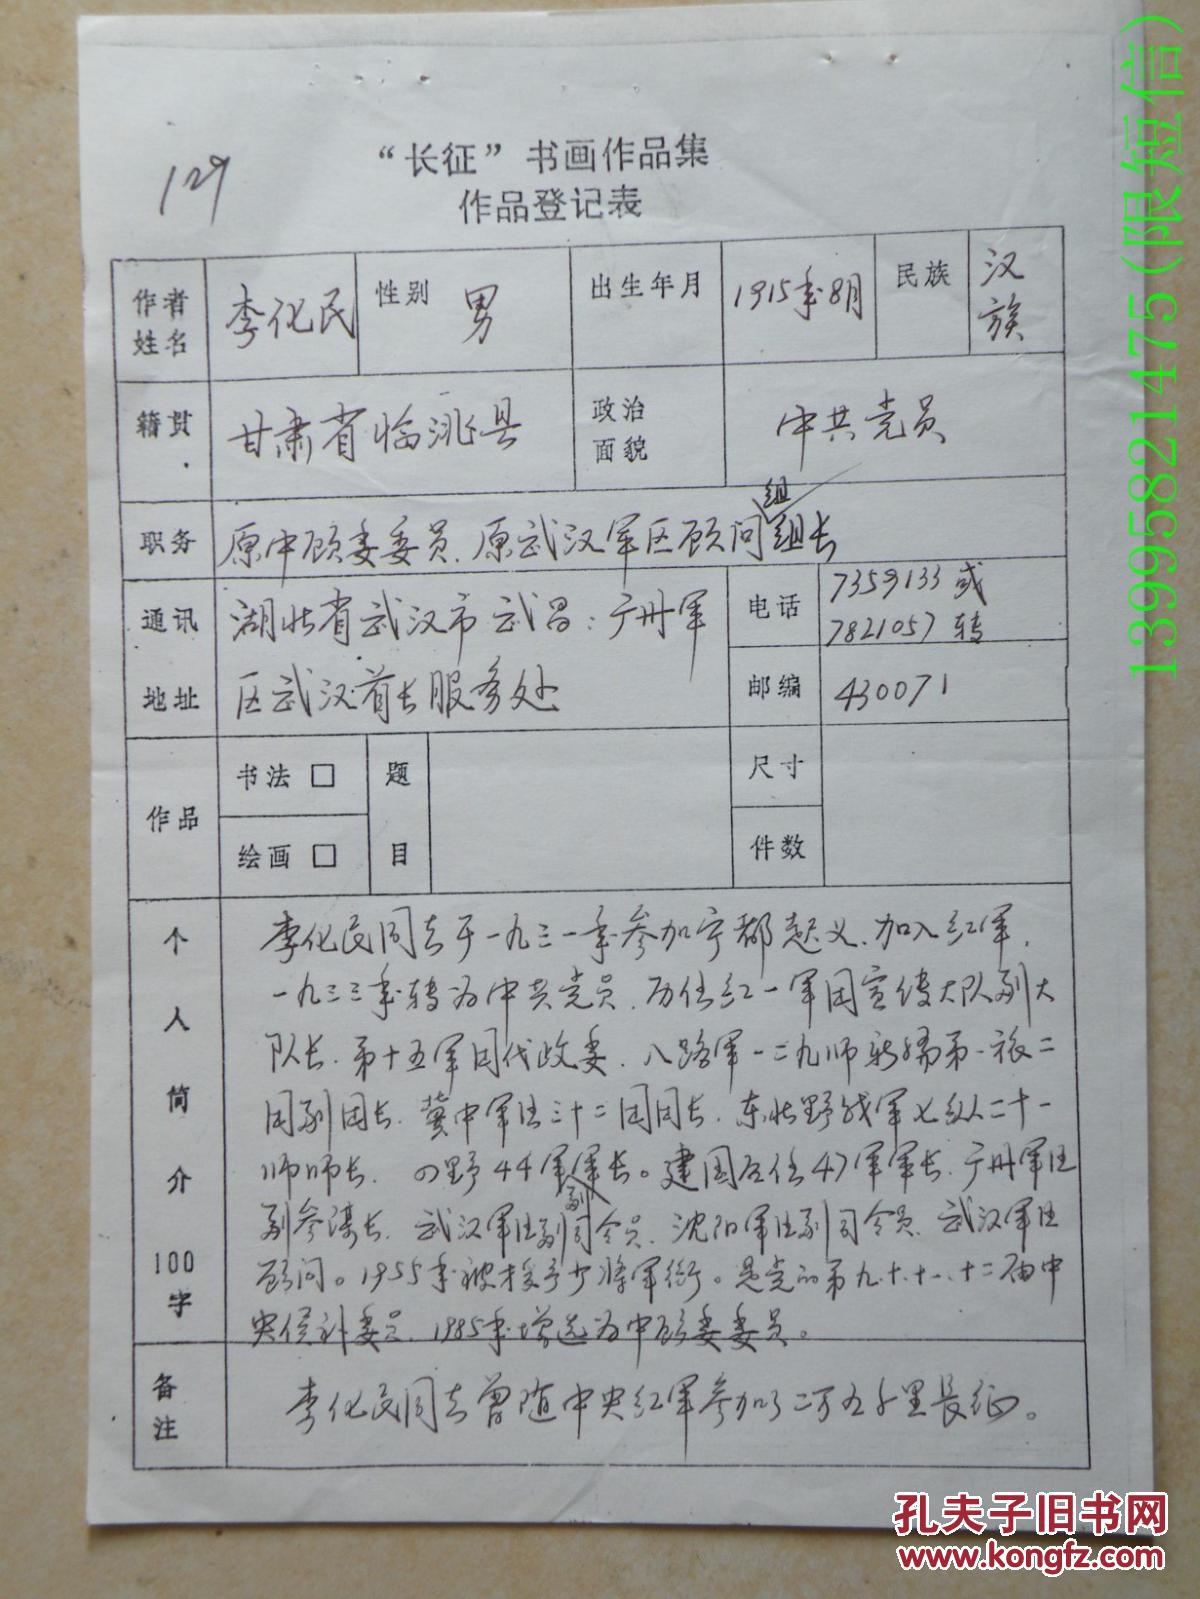 129
“长征”书画作品集
作品登记表
作者姓名 李化民 性别 男 出生年月 1915年8月 民族 汉族
籍贯 甘肃省临洮县 政治面貌 中共党员
组
职务 原中顾委委员、原武汉军区顾问组长
通讯地址 湖北省武汉市武昌:广州军
区武汉首长服务处
电话 7359133或
7821057转
邮编 430071
作品 书法 □ 绘画 □ 题目 尺寸 件数
个人简介100字
李化民同志于一九三一年参加宁都起义、加入红军,
一九三三年转为中共党员,历任红一军团宣传大队副大
队长、第十五军团代政委、八路军一二九师新编第一旅二
团副团长、冀中军区三十二团团长、东北野战军七纵二十一
师师长、四野44军军长。建国后任47军军长、广州军区
副
副参谋长、武汉军区副司令员、沈阳军区副司令员、武汉军区
顾问。1955年被授予少将军衔。是党的第九、十、十一、十二届中
央候补委员、1985年增选为中顾委委员。
备注 李化民同志曾随中央红军参加了二万五千里长征。
13995821475(限短信)
孔夫子旧书网
www.kongfz.com